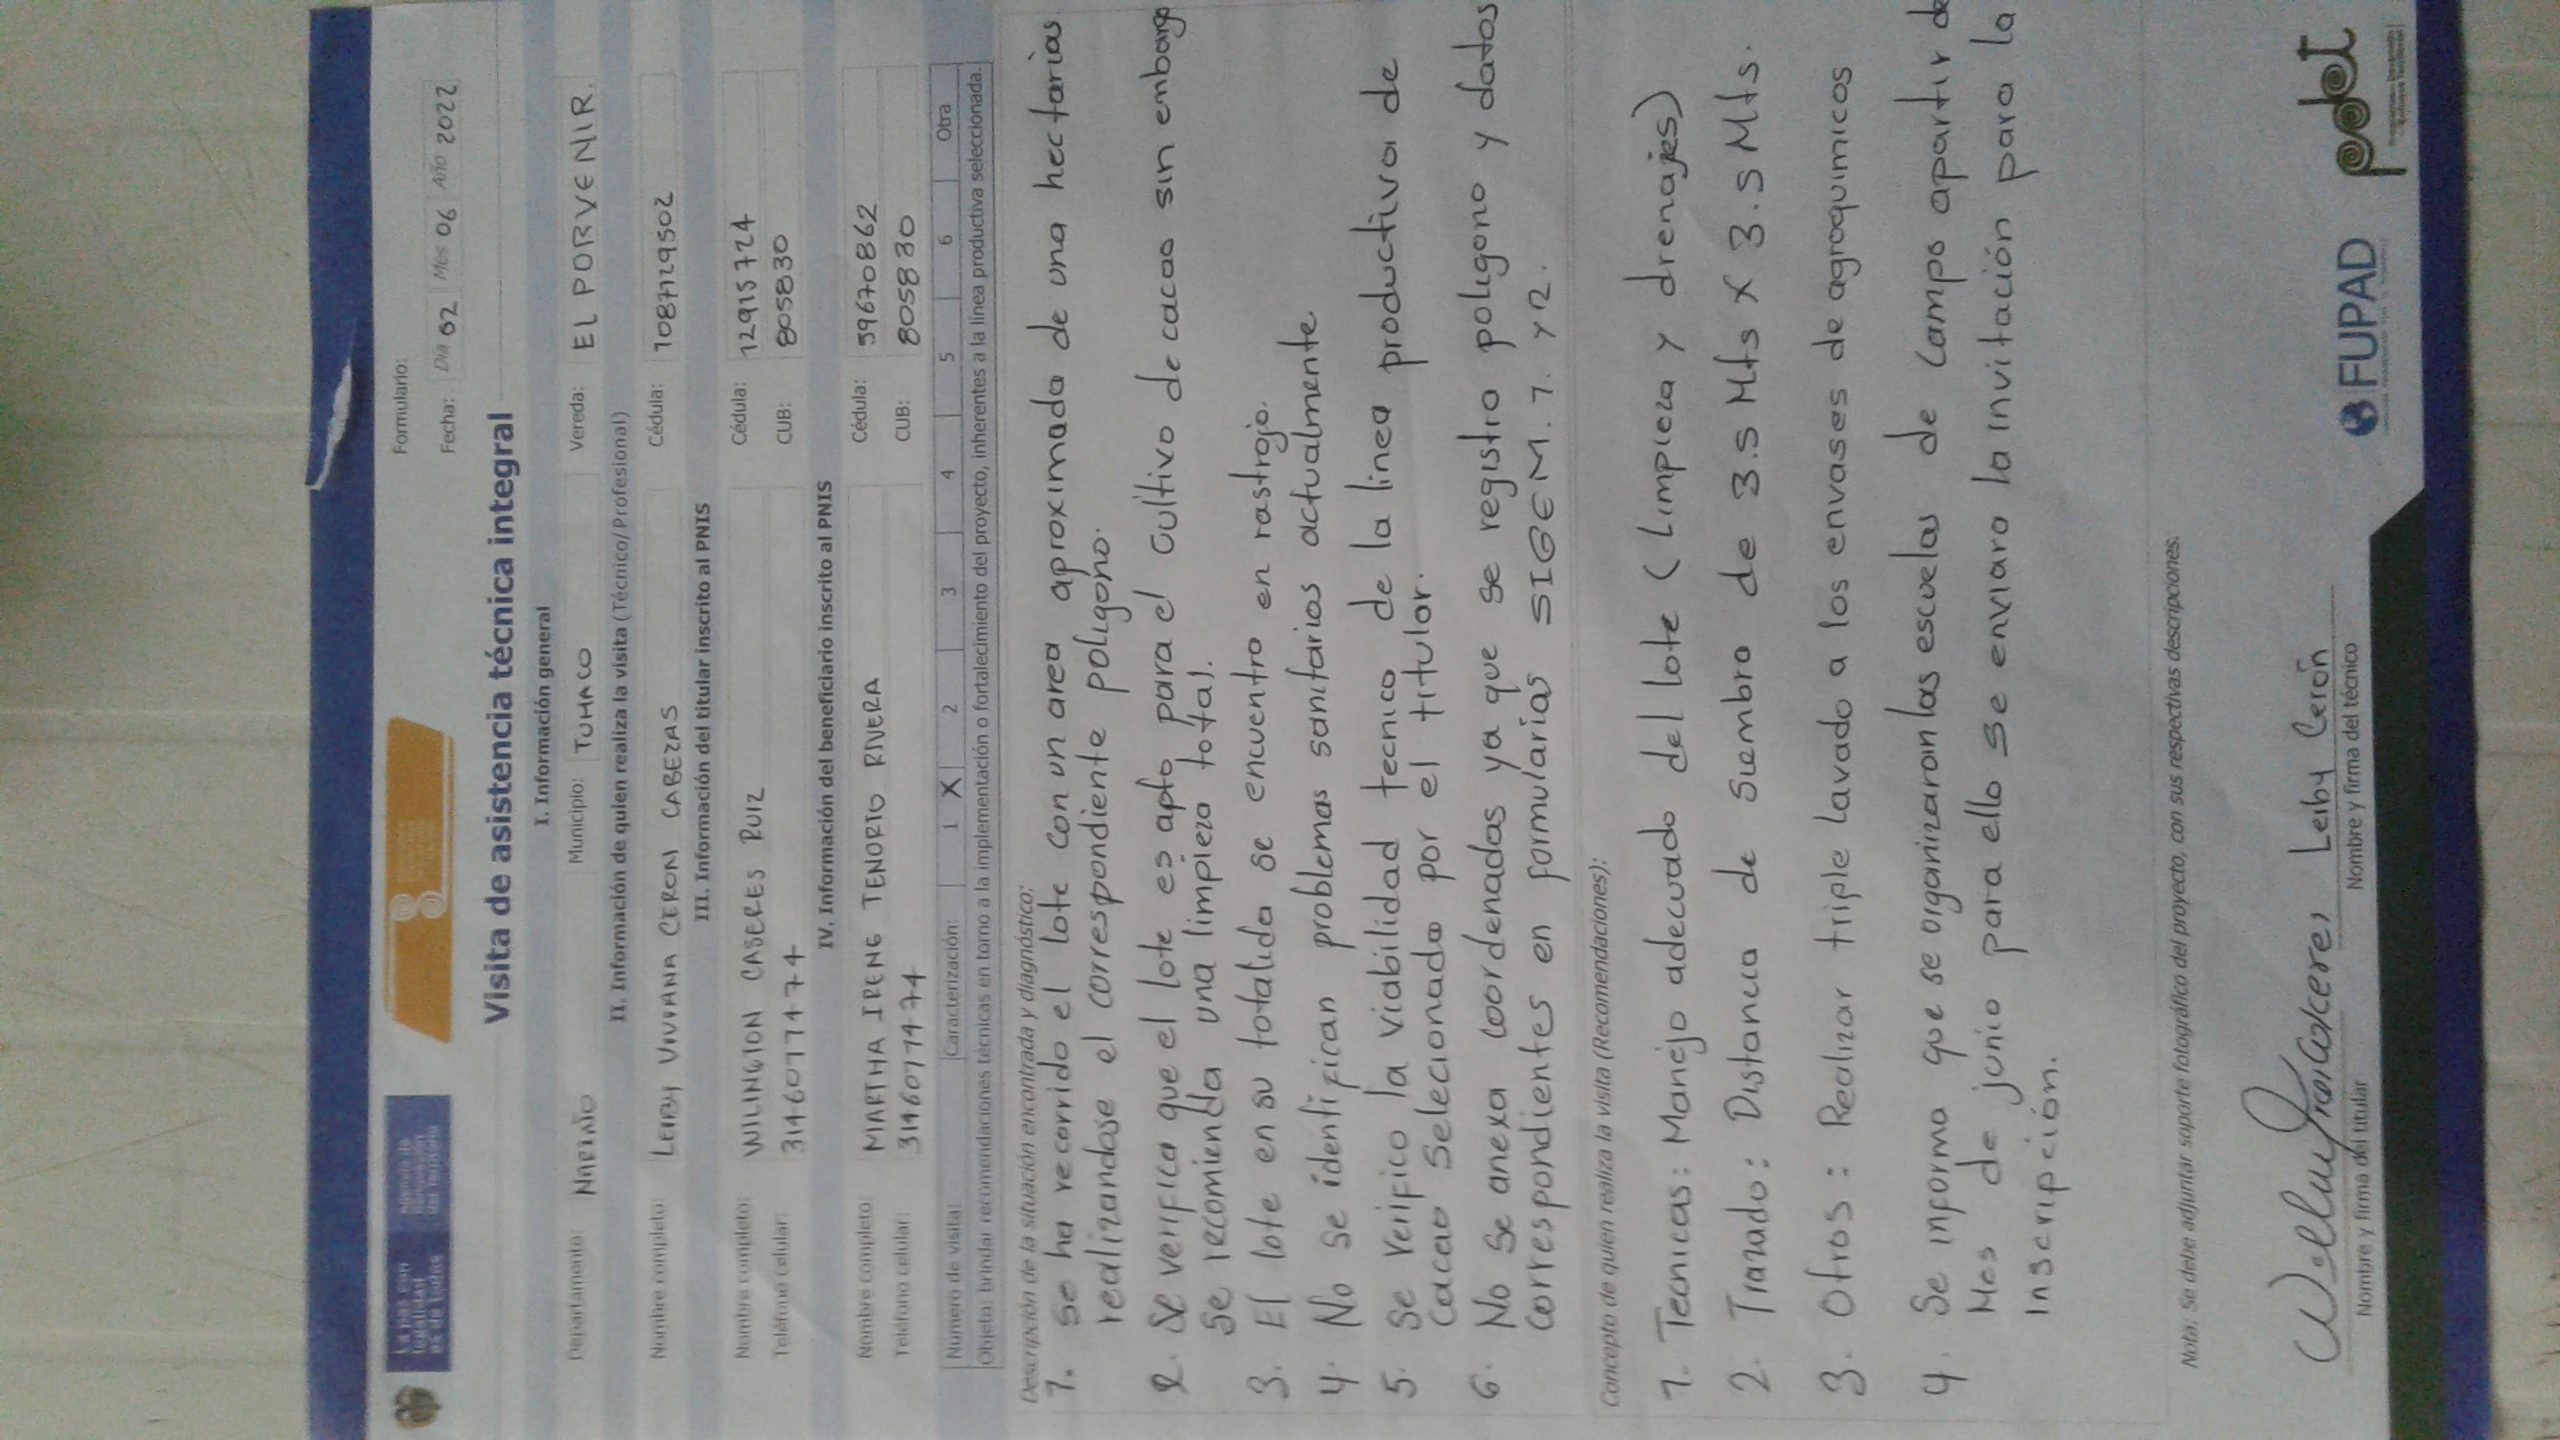 Formulario:
Fecha: Día 02 Mes 06 Año 2022
Visita de asistencia técnica integral
I. Información general
Departamento: NARIÑO Municipio: TUMACO Vereda: EL PORVENIR.
II. Información de quien realiza la visita (Técnico/Profesional)
Nombre completo: LEIBY VIVIANA CERON CABEZAS Cédula: 1087129502
III. Información del titular inscrito al PNIS
Nombre completo: WILINGTON CASERES RUIZ Cédula: 12915724
Teléfono celular: 3146077474 CUB: 805830
IV. Información del beneficiario inscrito al PNIS
Nombre completo: MARTHA IRENE TENORIO RIVERA Cédula: 59670862
Teléfono celular: 3146077474 CUB: 805830
Número de visita: Caracterización: 1 X 2 3 4 5 6 Otra
Objeto: brindar recomendaciones técnicas en torno a la implementación o fortalecimiento del proyecto, inherentes a la línea productiva seleccionada.
Descripción de la situación encontrada y diagnóstico:
1. Se ha recorrido el lote con un area aproximada de una hectarias
realizandose el correspondiente poligono.
2. Se verifica que el lote es apto para el cultivo de cacao sin embargo
se recomienda una limpieza total.
3. El lote en su totalida se encuentra en rastrojo.
4. No se identifican problemas sanitarios actualmente
5. Se verifico la viabilidad tecnica de la linea productiva de
cacao selecionada por el titular.
6. No se anexa coordenadas ya que se registra poligono y datos
correspondientes en formularias SIGEM. 1. y 2.
Concepto de quien realiza la visita (Recomendaciones):
1. Tecnicas: Manejo adecuado del lote (Limpieza y drenajes)
2. Trazado: Distancia de siembra de 3.5 Mts x 3.5 Mts.
3. Otros: Realizar triple lavado a los envases de agroquimicos
4. Se informa que se organizaran las escuelas de campo apartir de
Mes de junio para ello se enviara la invitación para la
Inscripción.
Nota: Se debe adjuntar soporte fotográfico del proyecto, con sus respectivas descripciones.
Leiby Cerón
Nombre y firma del titular Nombre y firma del técnico
FUPAD
pdet